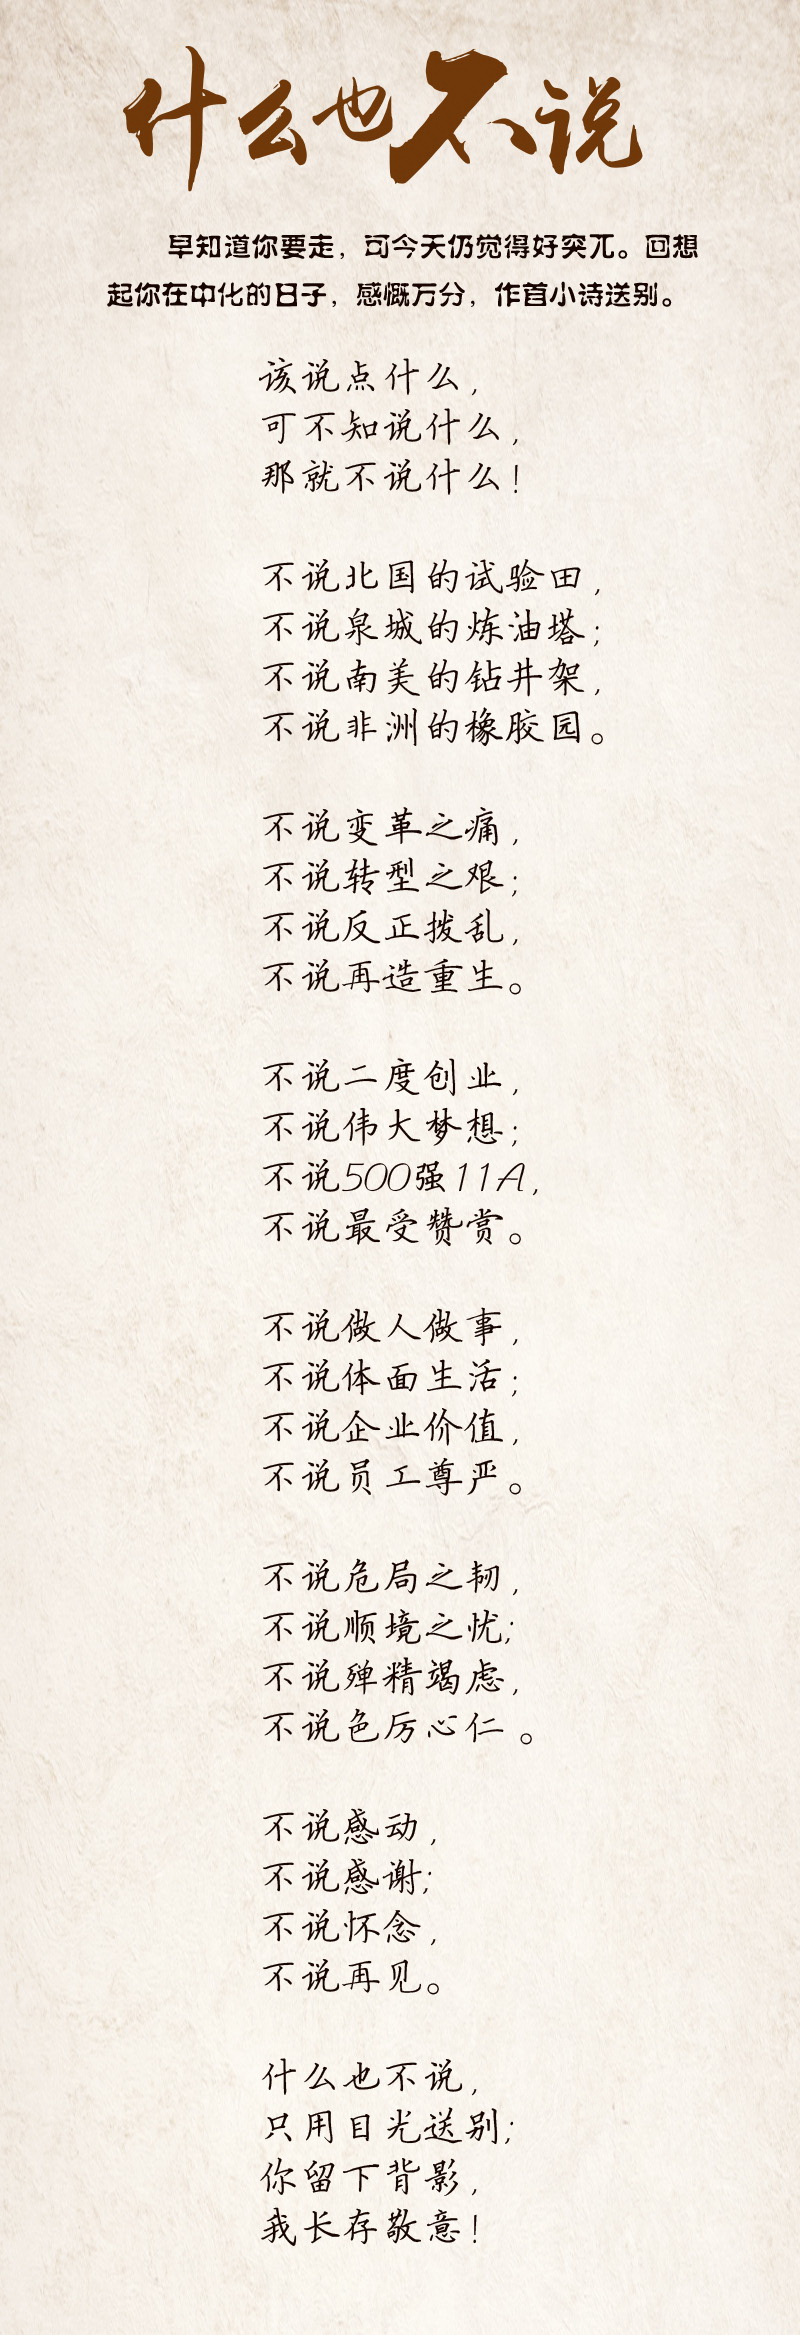 什么也不说
早知道你要走，可今天仍觉得好突兀。回想
起你在中化的日子，感慨万分，作首小诗送别。
该说点什么，
可不知说什么，
那就不说什么！
不说北国的试验田，
不说泉城的炼油塔；
不说南美的钻井架，
不说非洲的橡胶园。
不说变革之痛，
不说转型之艰；
不说反正拨乱，
不说再造重生。
不说二度创业，
不说伟大梦想；
不说500强11A，
不说最受赞赏。
不说做人做事，
不说体面生活；
不说企业价值，
不说员工尊严。
不说危局之韧，
不说顺境之忧；
不说殚精竭虑，
不说色厉心仁。
不说感动，
不说感谢；
不说怀念，
不说再见。
什么也不说，
只用目光送别；
你留下背影，
我长存敬意！